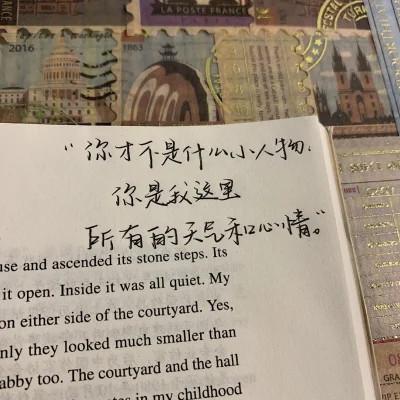 LA POSTE FRANCE
2016
1863
“你才不是什么小人物,
你是我这里
所有的天气和心情。”
use and ascended its stone steps. Its
it open. Inside it was all quiet. My
on either side of the courtyard. Yes,
nly they looked much smaller than
abby too. The courtyard and the hall
in my childhood